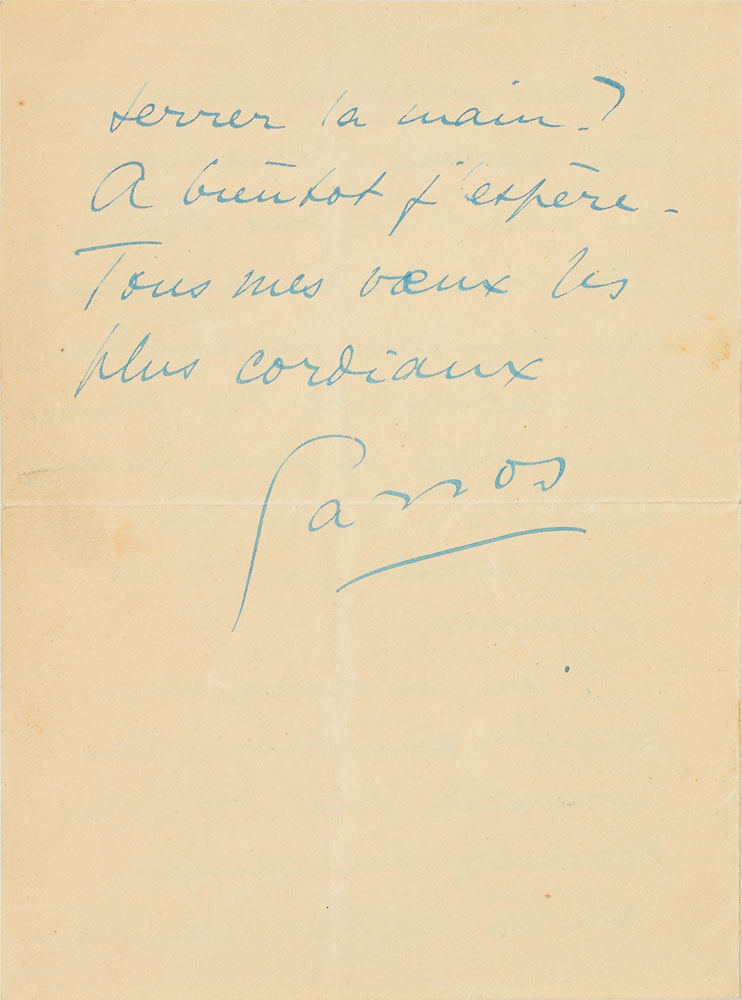 serrer la main ?
A bientôt j'espère -
Tous mes vœux les
plus cordiaux
Garros